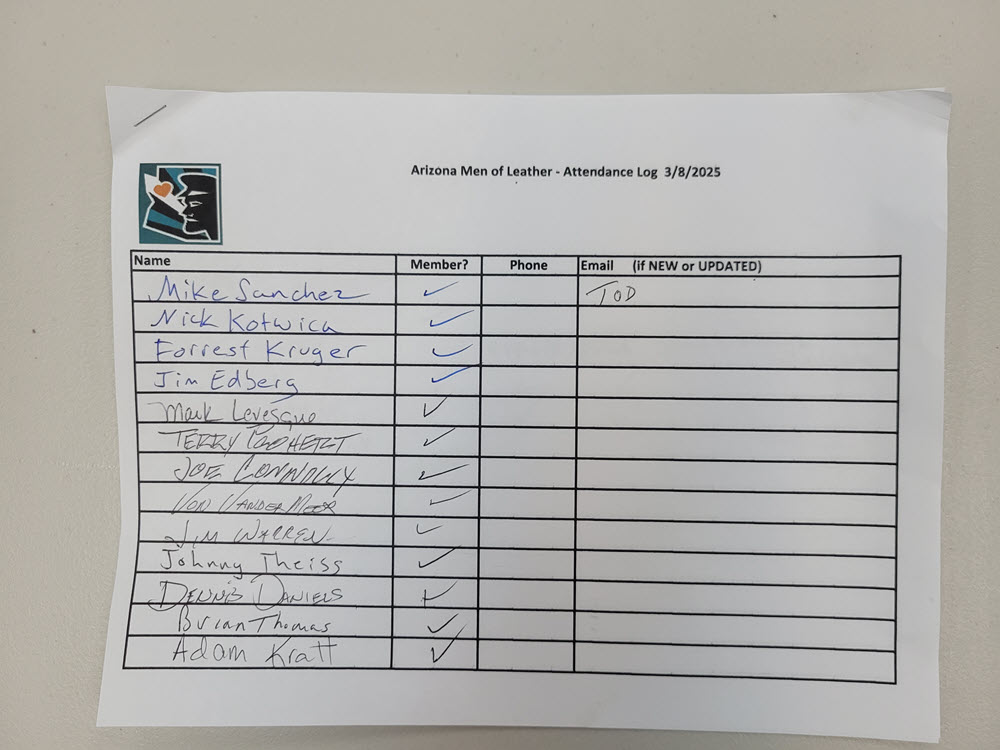 Arizona Men of Leather - Attendance Log 3/8/2025
Name Member? Phone Email (if NEW or UPDATED)
Mike Sanchez ✓ TOD
Nick Kotwica ✓
Forrest Kruger ✓
Jim Edberg ✓
Mark Levesque ✓
TERRY ✓
JOE CONNOLLY ✓
VON VANDERMEER ✓
JIM WARREN ✓
Johnny Theiss ✓
DENNIS DANIELS ✓
Brian Thomas ✓
Adam Kratt ✓